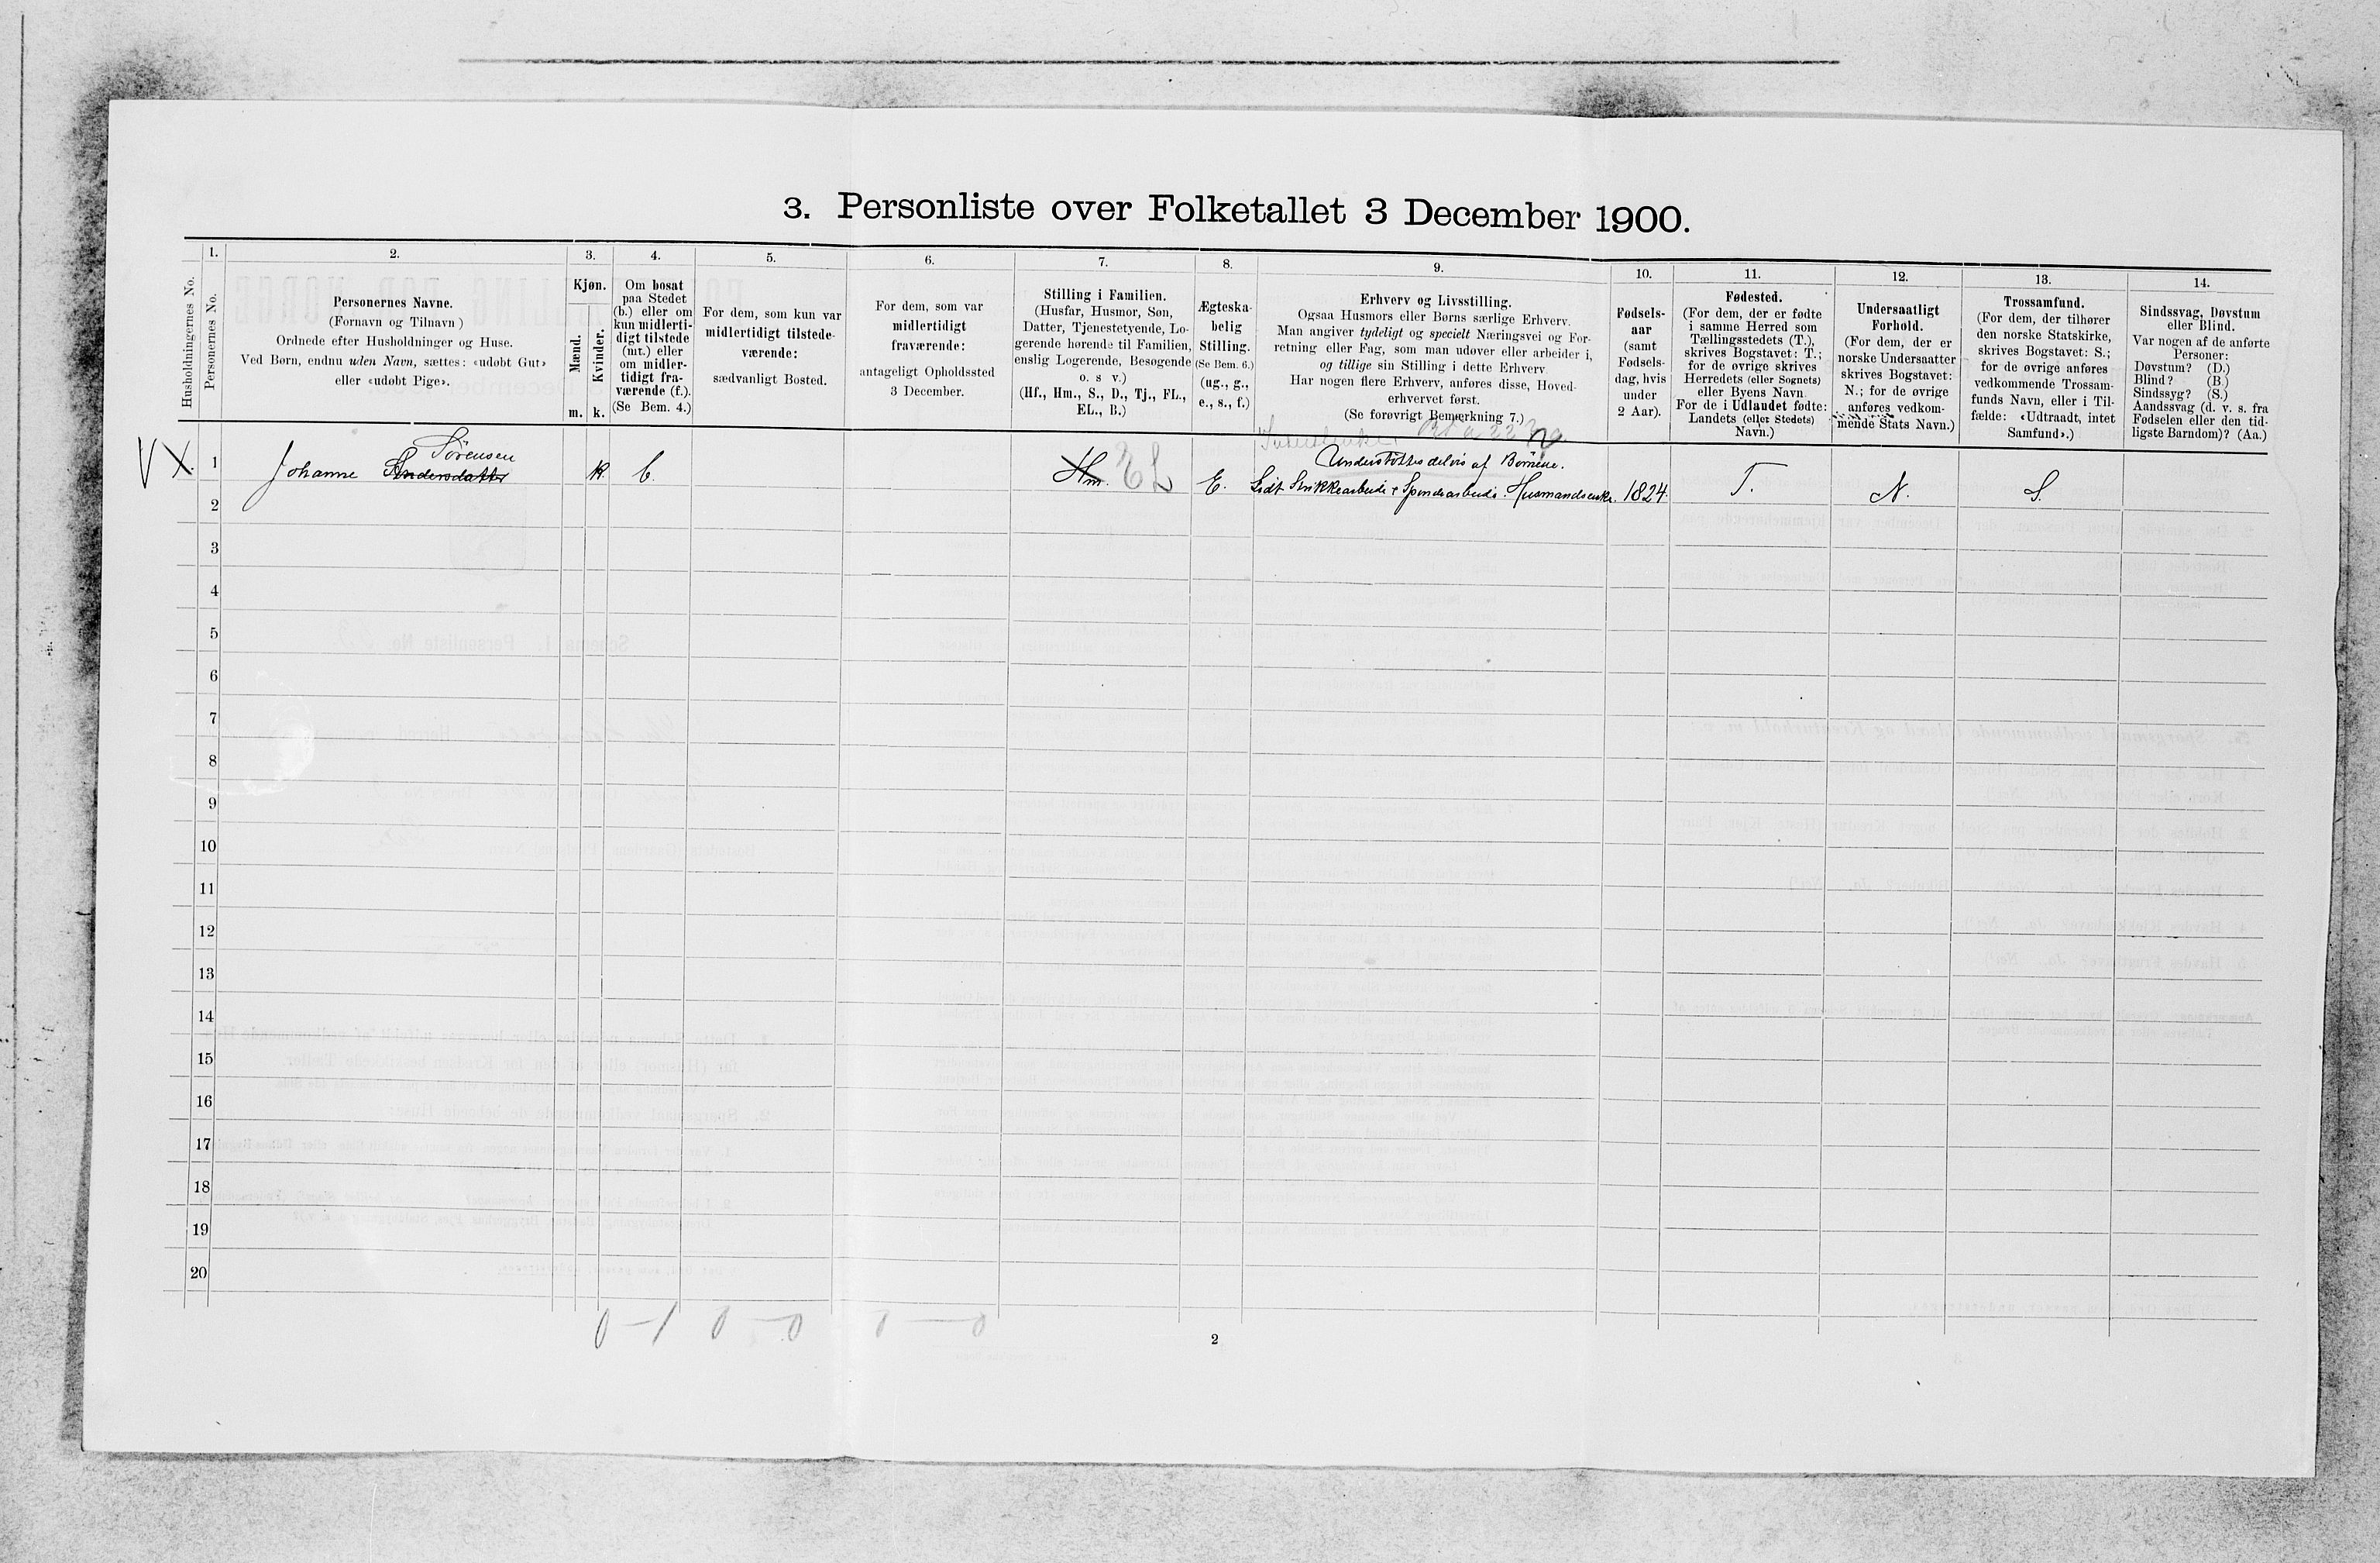 3. Personliste over Folketallet 3 December 1900.
Husholdningernes No.
1.
Personernes No.
2.
Personernes Navne.
(Fornavn og Tilnavn)
Ordnede efter Husholdninger og Huse.
Ved Børn, endnu uden Navn, sættes: «udøbt Gut»
eller «udøbt Pige».
3.
Kjøn.
Mænd.
Kvinder.
m.
k.
4.
Om bosat
paa Stedet
(b.) eller om
kun midlerti-
digt tilstede
(mt.) eller
om midler-
tidigt fra-
værende (f.).
(Se Bem. 4.)
5.
For dem, som kun var
midlertidigt tilstede-
værende:
sædvanligt Bosted.
6.
For dem, som var
midlertidigt
fraværende:
antageligt Opholdssted
3 December.
7.
Stilling i Familien.
(Husfar, Husmor, Søn,
Datter, Tjenestetyende, Lo-
gerende hørende til Familien,
enslig Logerende, Besøgende
o. s v.)
(Hf., Hm., S., D., Tj., FL.,
EL., B.)
8.
Ægteska-
belig
Stilling.
(Se Bem. 6.)
(ug., g.,
e., s., f.)
9.
Erhverv og Livsstilling.
Ogsaa Husmors eller Børns særlige Erhverv.
Man angiver tydeligt og specielt Næringsvei og For-
retning eller Fag, som man udøver eller arbeider i,
og tillige sin Stilling i dette Erhverv.
Har nogen flere Erhverv, anføres disse, Hoved-
erhvervet først.
(Se forøvrigt Bemerkning 7.)
10.
Fødsels-
aar
(samt
Fødsels-
dag, hvis
under
2 Aar).
11.
Fødested.
(For dem, der er fødte
i samme Herred som
Tællingsstedets (T.),
skrives Bogstavet: T.;
for de øvrige skrives
Herredets (eller Sognets)
eller Byens Navn.
For de i Udlandet fødte:
Landets (eller Stedets)
Navn.)
12.
Undersaatligt
Forhold.
(For dem, der er
norske Undersaatter
skrives Bogstavet:
N.; for de øvrige
anføres vedkom-
mende Stats Navn.)
13.
Trossamfund.
(For dem, der tilhører
den norske Statskirke,
skrives Bogstavet: S.;
for de øvrige anføres
vedkommende Trossam-
funds Navn, eller i Til-
fælde: «Udtraadt, intet
Samfund».)
14.
Sindssvag, Døvstum
eller Blind.
Var nogen af de anførte
Personer:
Døvstum? (D.)
Blind? (B.)
Sindssyg? (S.)
Aandssvag (d. v. s. fra
Fødselen eller den tid-
ligste Barndom)? (Aa.)
V X. 1 Johanne Andersdatter Sörensen k. b. Hm. EL E.
Understöttes delvis af Börnene.
Lidt Strikkearbeide & Spindearbeide. Husmandsenke. 1824. T. N. S.
2
3
4
5
6
7
8
9
10
11
12
13
14
15
16
17
18
19
20
0 – 1 0 – 0 0 – 0
2